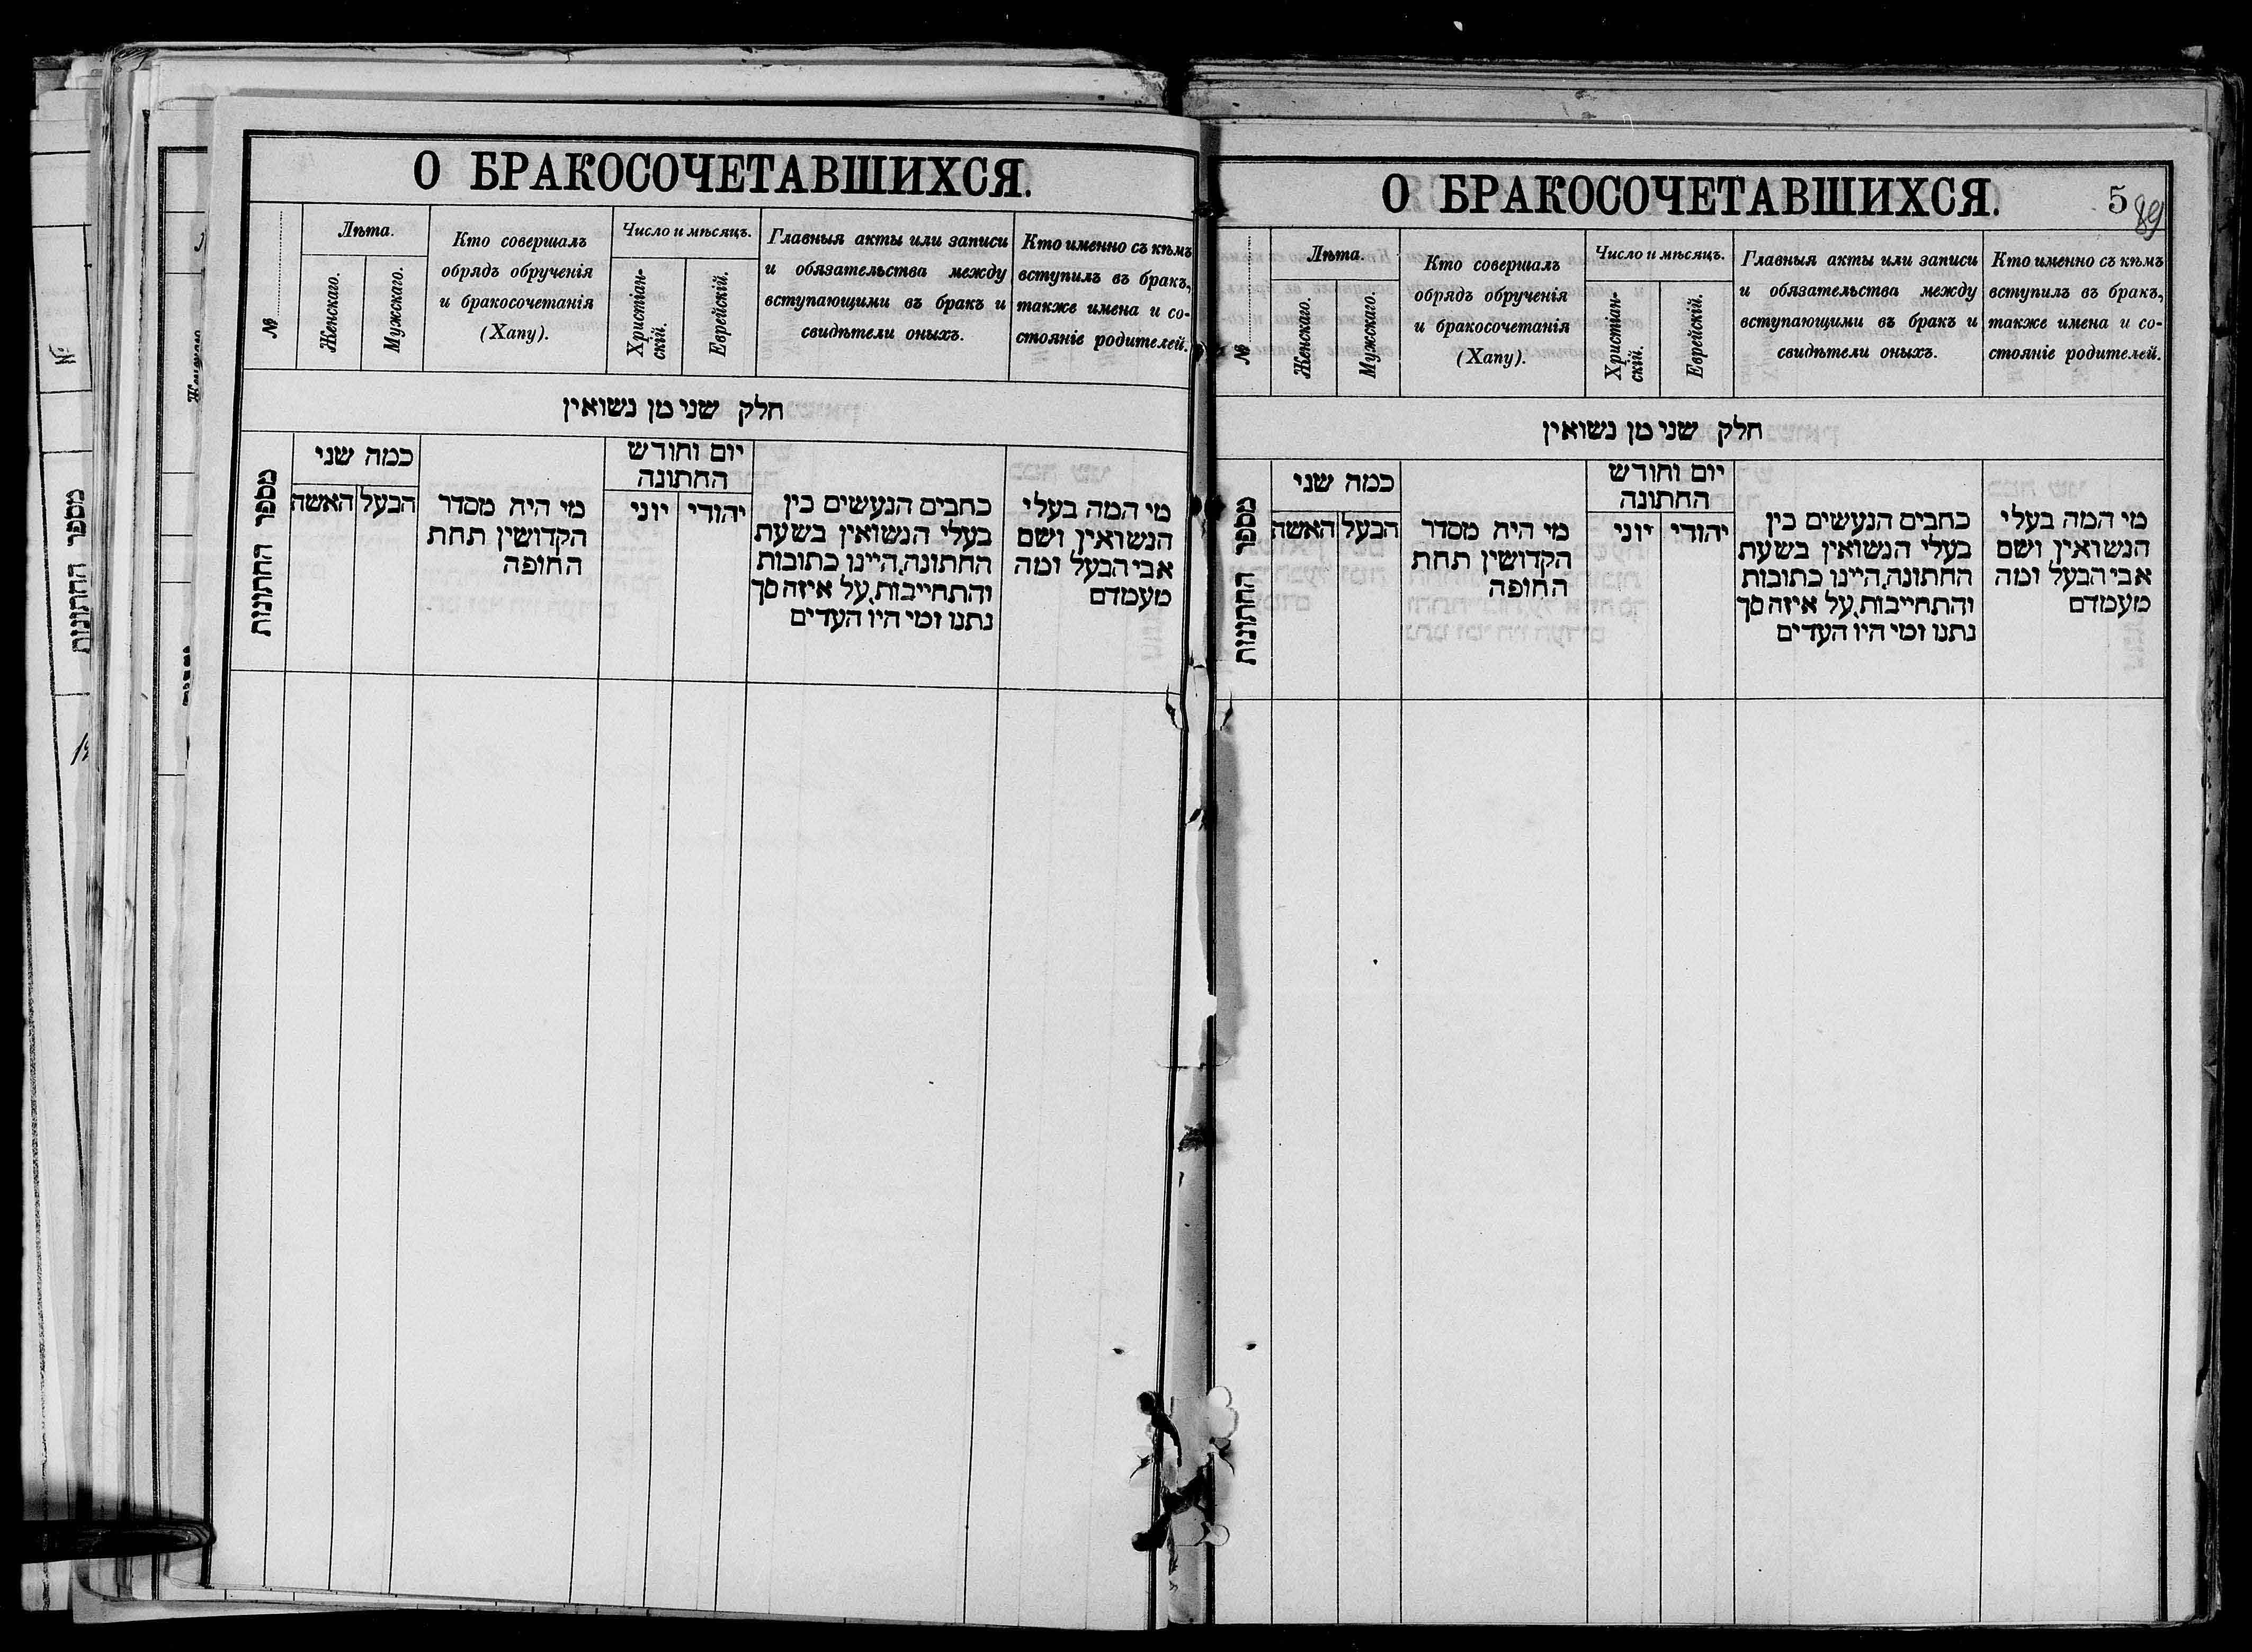 О БРАКОСОЧЕТАВШИХСЯ.
№
Лѣта.
Женскаго.
Мужскаго.
Кто совершалъ
обрядъ обрученія
и бракосочетанія
(Хапу).
Число и мѣсяцъ.
Христіан-
скій.
Еврейскій.
Главныя акты или записи
и обязательства между
вступающими въ бракъ и
свидѣтели оныхъ.
Кто именно съ кѣмъ
вступилъ въ бракъ,
также имена и со-
стояніе родителей.
חלק שני מן נשואין
מספר החתונות
כמה שני
הבעל
האשה
מי היה מסדר
הקדושין תחת
החופה
יום וחודש
החתונה
יהודי
יוני
כתבים הנעשים בין
בעלי הנשואין בשעת
החתונה, היינו כתובות
והתחייבות, על איזה סך
נתנו ומי היו העדים
מי המה בעלי
הנשואין ושם
אבי הבעל ומה
מעמדם
О БРАКОСОЧЕТАВШИХСЯ.
5
89
№
Лѣта.
Женскаго.
Мужскаго.
Кто совершалъ
обрядъ обрученія
и бракосочетанія
(Хапу).
Число и мѣсяцъ.
Христіан-
скій.
Еврейскій.
Главныя акты или записи
и обязательства между
вступающими въ бракъ и
свидѣтели оныхъ.
Кто именно съ кѣмъ
вступилъ въ бракъ,
также имена и со-
стояніе родителей.
חלק שני מן נשואין
מספר החתונות
כמה שני
הבעל
האשה
מי היה מסדר
הקדושין תחת
החופה
יום וחודש
החתונה
יהודי
יוני
כתבים הנעשים בין
בעלי הנשואין בשעת
החתונה, היינו כתובות
והתחייבות, על איזה סך
נתנו ומי היו העדים
מי המה בעלי
הנשואין ושם
אבי הבעל ומה
מעמדם
№
מספר החתונות